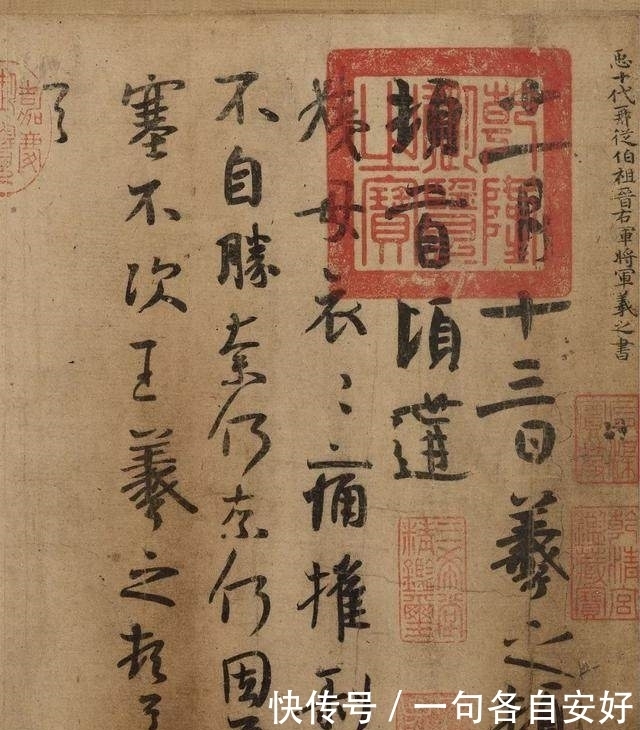 臣十代再從伯祖晉右軍將軍羲之書
十一月十三日羲之頓
頓首頃遘
姨母哀〻痛摧剝
不自勝奈何奈何因
塞不次王羲之頓首
乾隆御覽之寶
嘉慶
三希堂精鑑璽
乾清宮鑑藏寶
快传号 / 一句各自安好